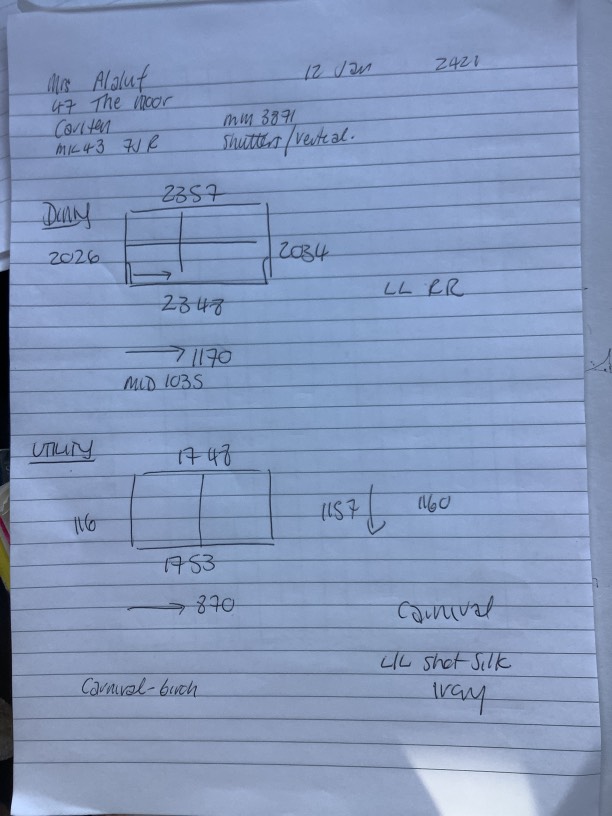 Mrs Alaluf 12 Jan 2421
47 The Moor
Carlton mm 3871
MK43 7JR Shutters/Vertical.
2357
Dining
2026 2034
2348 LL RR
1170
MID 1035
UTILITY
1748
116 1157 1160
1753
870 Carnival
L/L Shot Silk
Carnival-birch